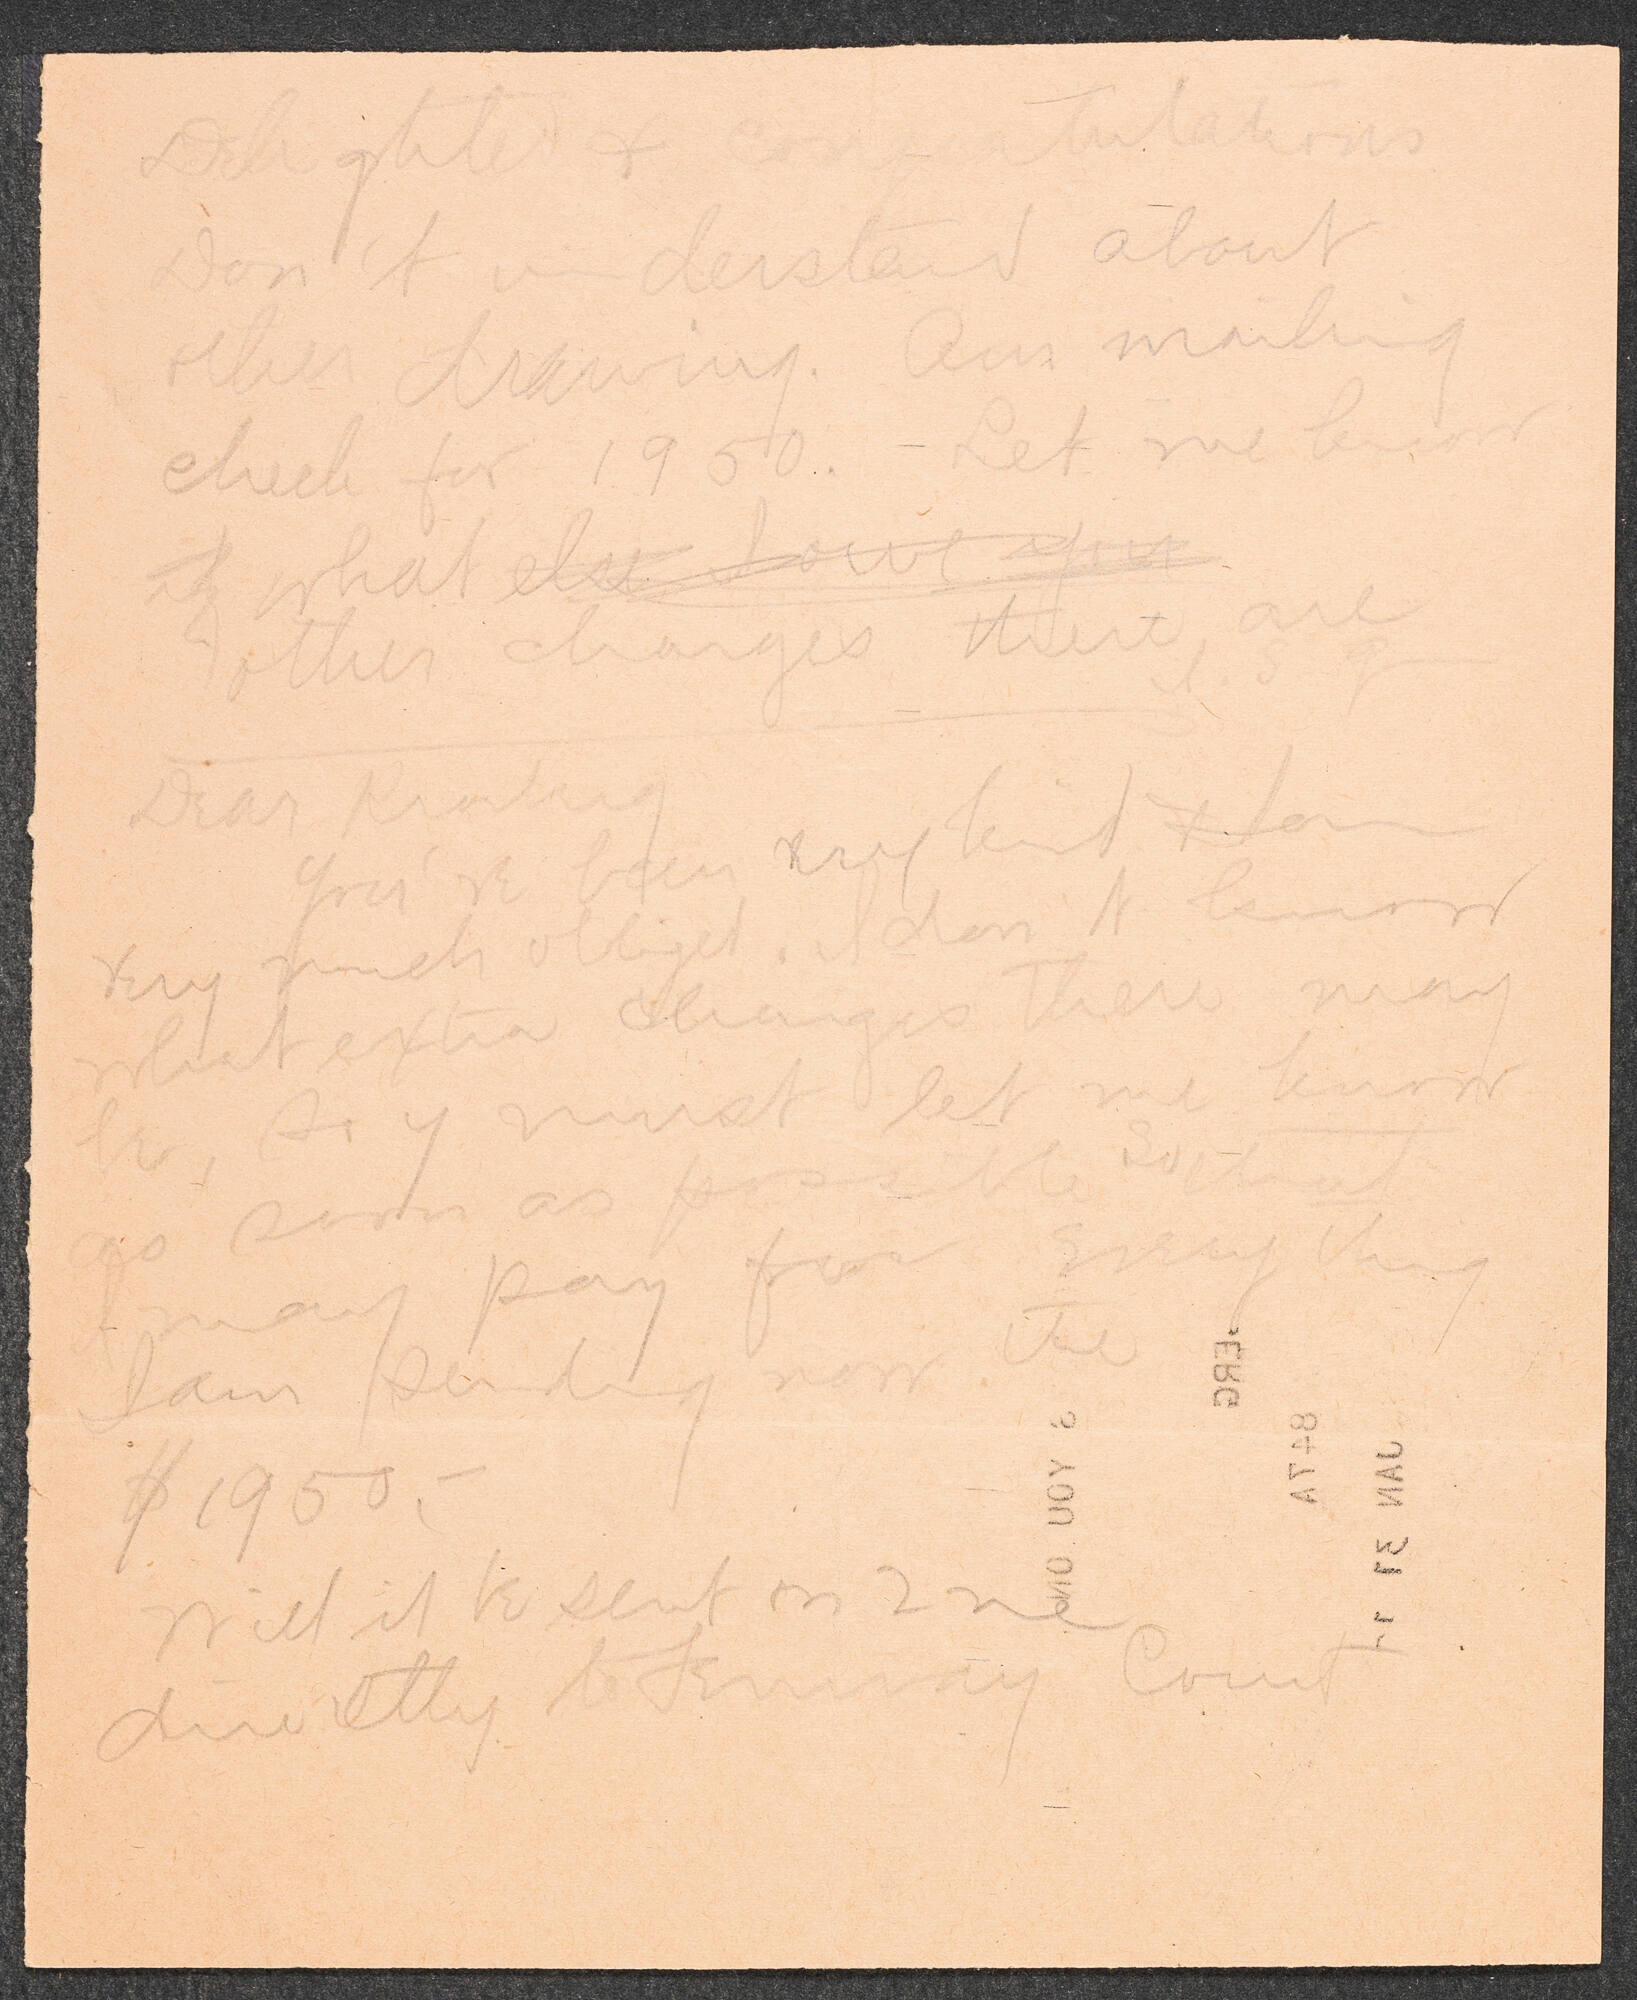 Delighted & congratulations
Don't understand about
other drawing. Am mailing
check for 1950. - Let me know
if what else I owe you
other charges there are
I. S. G
Dear Kronberg
You've been very kind & I am
very much obliged. I don't know
what extra charges there may
be, so y must let me know
as soon as possible so that
I may pay for everything
I am sending now the
$1950.-
Will it be sent on 2 me
directly to Fenway Court
ERG
847A
JAN 31
YOU